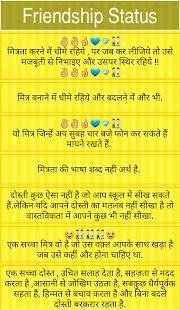 Friendship Status
मित्रता करने में धीमे रहिये , पर जब कर लीजिये तो उसे
मजबूती से निभाइए और उसपर स्थिर रहिये !!
मित्र बनाने में धीमे रहिये और बदलने में और भी.
वो मित्र जिन्हें आप सुबह चार बजे फोन कर सकते हैं
मायने रखते हैं.
मित्रता की भाषा शब्द नहीं अर्थ है.
दोस्ती कुछ ऐसा नहीं है जो आप स्कूल में सीख सकते
हैं,लेकिन यदि आपने दोस्ती का मतलब नहीं सीखा है तो
वास्तविकता में आपने कुछ भी नहीं सीखा.
एक सच्चा मित्र वो है जो उस वक़्त आपके साथ खड़ा है
जब उसे कहीं और होना चाहिए था.
एक सच्चा दोस्त , उचित सलाह देता है, सहजता से मदद
करता है ,आसानी से जोखिम उठता है, सबकुछ धैर्यपूर्वक
सहता है, हिम्मत से बचाव करता है और बिना बदले
दोस्ती बरक़रार रहता है.